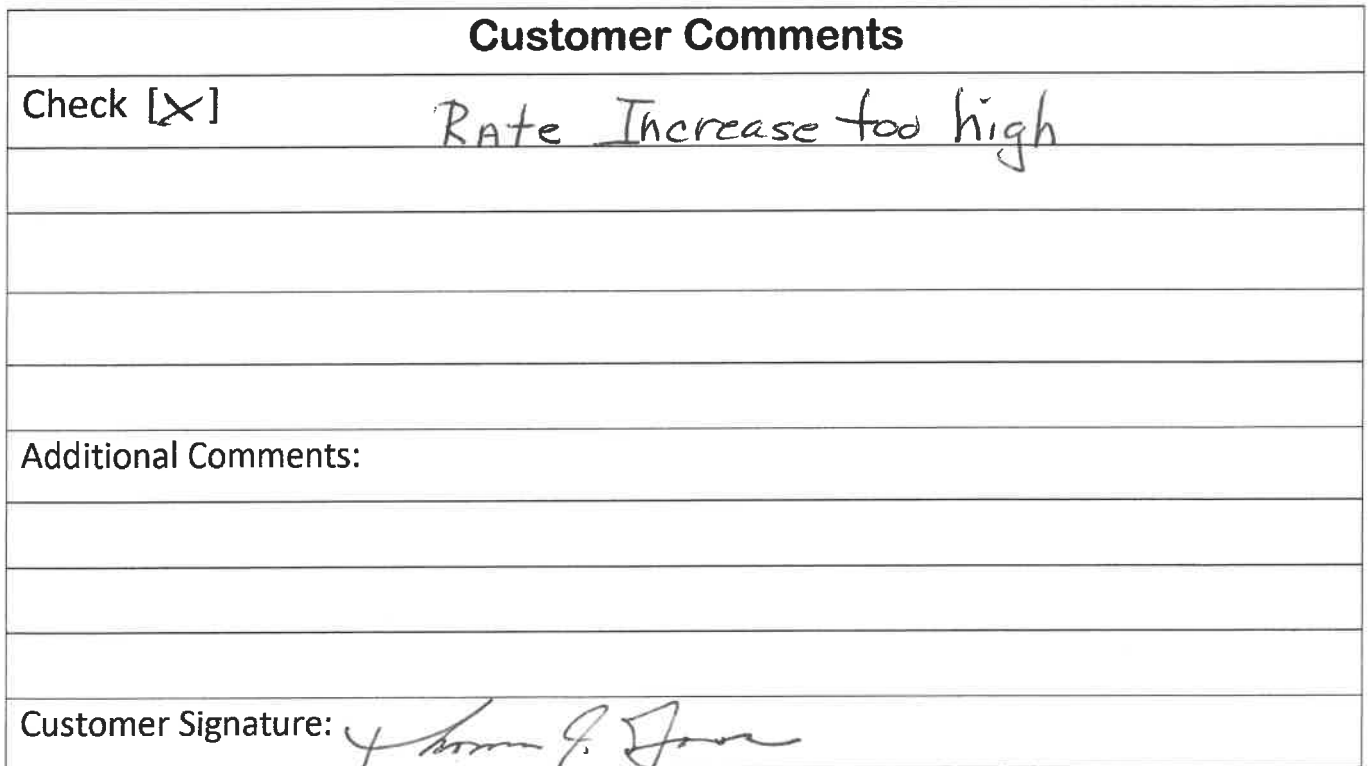 Customer Comments
Check [X] Rate Increase too high
Additional Comments:
Customer Signature: